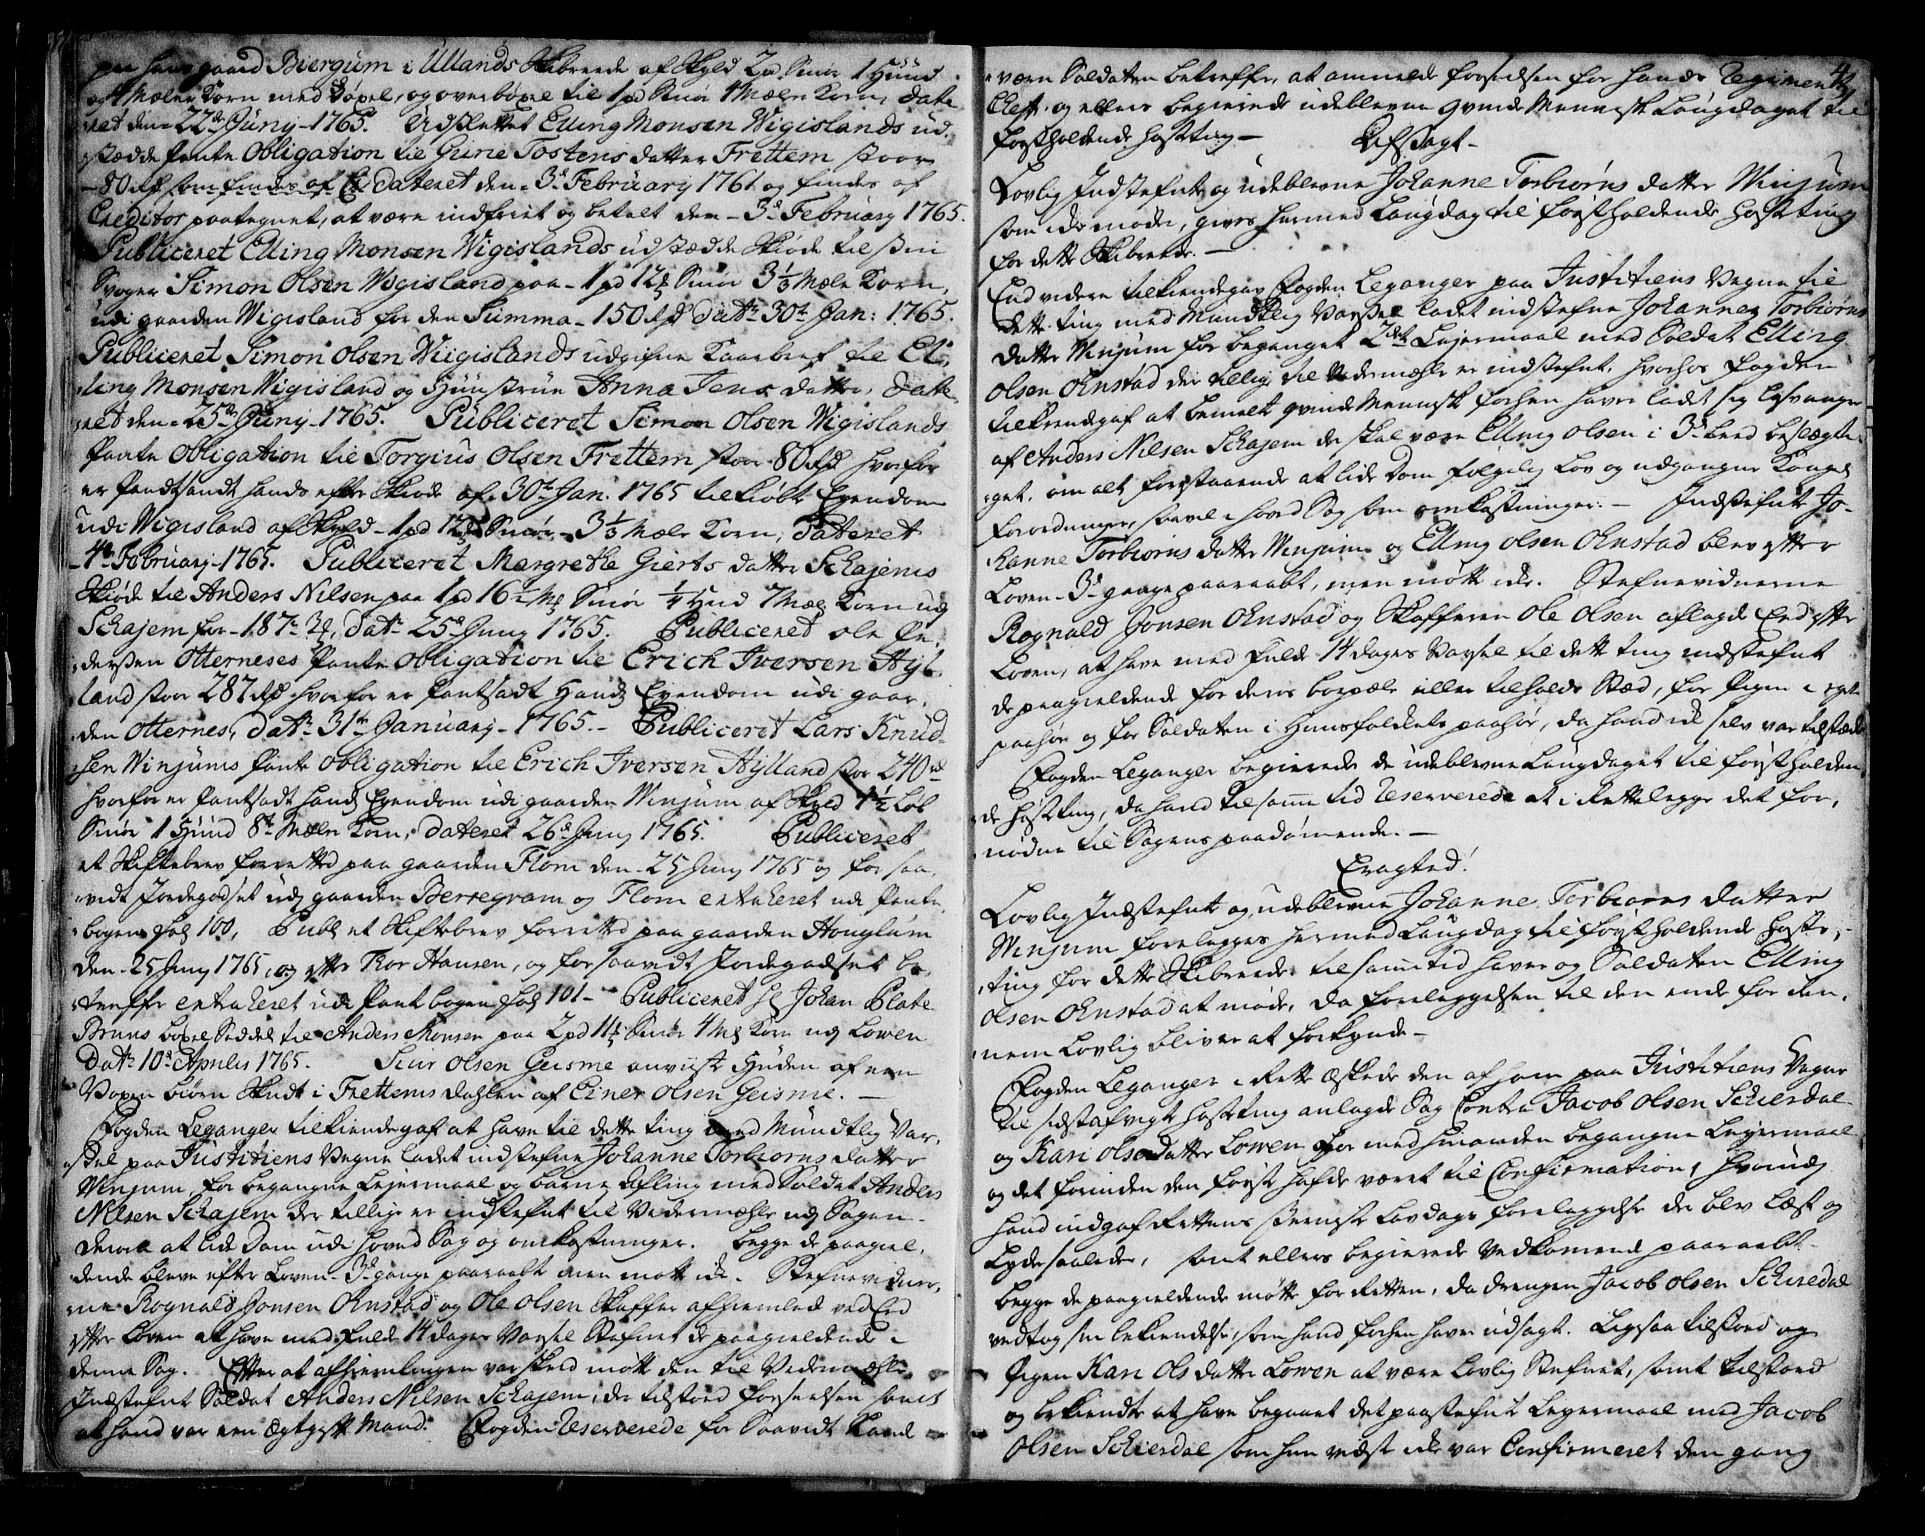 paa hans gaard Biergum i Ullands Skibrede af Skyld 2 pd Smør 1 Huud
og 4 Mæler Korn med Bøxel, og overbøxel til 1 pd Smør 1 Mæle Korn, date
ret den 22de Junÿ 1765. Udslettet Elling Monsen Wigislands ud-
stædde Pante Obligation til Giirie Tostens datter Frettem stoor
80 Rd som findes af dateret den 3de Februarij 1761 og findes af
Creditor paategnet, at være indfriet og betalt den 3de Februarij 1765.
Publiceret Elling Monsen Wigislands udstædde Skiøde til sin
Svoger Simon Olsen Wigisland paa 1 pd 12 Smør 3 1/3 Mæle Korn,
udi gaarden Wigisland for den Summa 150 Rd Datr 30te Jan: 1765.
Publiceret Simon Olsen Wiigislands udgifne Kaarbref til El-
ling Monsen Wigisland og Huustrue Anna Jens datter, Date
ret den 25de Junÿ 1765. Publiceret Simon Olsen Wigislands
Pante Obligation til Torgiüs Olsen Frettem stoor 80 Rd hvorfor
er Pandtsadt hands efter Skiøde af 30te Jan. 1765 tilkiøbt Eyendom
udi Wigisland af Skyld 1 pd 12 Smør 3 1/3 Mæle Korn, Dateret
4de Februarij 1765. Publiceret Margrethe Gierts datter Schajems
Skiøde til Anders Nilsen paa 1 pd 16 1/2 Mk Smør 1/4 Hud 7 Mæle Korn udj
Schajem for 187 Rd, Datr 25de Junÿ 1765. Publiceret Ole Pe-
dersen Otterneses Pante Obligation til Erich Iversen Hÿl-
land stoor 287 Rd hvorfor er Pantsadt Hands Eyendom udi gaar-
den Otternes, Datr 31te Januarij 1765. Publiceret Lars Knud-
sen Winjums Pante Obligation til Erich Iversen Hÿlland stoor 240 rd
hvorfor er Pantsadt hands Eyendom udi gaarden Winjum af Skyld 1 1/2 Løb
Smør 1 Huud 8te Mæler Korn, dateret 26de Junÿ 1765. Publiceret
et Skiftebrev forrettet paa gaarden Flom den 25 Junÿ 1765 og for saa
vidt Jordegodset udj gaarden Berregram og Flom extraheret udi Pante
bogen Fol 100, Publ et Skiftebrev forretted paa gaarden Houglum
den 25 Junÿ 1765, og efter Tor Hansen, og for saavidt Jordegodset be-
treffer extraheret udi Pantbogen Fol 101. Publiceret Hr Johan Plate
Bruns bøxel Seddel til Anders Monsen paa 2 pd 11 Smør 4 Mæl Korn udj Lowen
Datr 10de Aprilis 1765. Siur Olsen Geisme anviiste Huden af een
Voxen biørn Skudt i Frettems Dahlen af Einer Olsen Geisme.
Fogden Leganger tilkiendegaf at have til dette ting med Mundtlig Var-
sel paa Justitiens Vegne ladet indstefne Johanne Torbiørns datter
Winjum for begangne Leyermaal og barne Afling med Soldat Anders
Nilsen Schajem der tillige er indstefnt til Vedermæhle udj Sagen
derom at lide Dom udi hoved Sag og omkostninger. begge de paagiel-
dende bleve efter Loven 3de gange paaraabt men mødte ikke. Stefnevidner-
ne Rognald Jonsen Onstad og Ole Olsen Skaffer afhiemlede ved Eed
efter Loven at have med fulde 14 dages Varsel Stefnet de paagieldende i
denne Sag. Efter at afhiemlingen var skeed mødte den til Vedermæhle
Indstefnt Soldat Anders Nilsen Schajem, der tilstoed forseelsen samt
at hand var een Ægtegift Mand. Fogden Reserverede for Saavidt Kand
være Soldaten betreffer, at anmelde forseelsen for hands Regiments
Chef. og ellers begierede udeblevne qvinde Menniske Laugdaget til
førstholdende høstting – Afsagt.
Lovlig Indstefnte og udeblevne Johanne Torbiørns datter Winjum
som ikke møder, gives hermed Laugdag til førstholdende høstting
for dette Skibrede. –
End videre tilkiendegav Fogden Leganger paa Justitiens Vegne til
dette ting med Mundtlig Varsel ladet indstefne Johanne Torbiørns
datter Winjum for beganget 2det Leyermaal med Soldat Elling
Olsen Onstad der tillige til Vedermæhle er indstefnt, hvorhos Fogden
tilkiendegaf at bemelte qvinde Menniske forhen haver ladt sig besvangre
af Anders Nilsen Schajem der skal være Elling Olsen i 3de Leed beslægte-
get. om alt forestaaende at lide Dom følgelig Lov og udgangne Kongel
Forordninger, saavel i hoved Sag som omkostninger. – Indstefnte Jo-
hanne Torbiørns datter Winjum og Elling Olsen Onstad blev efter
Loven 3de gange paaraabt, men mødte ikke. Stefnevidnerne
Rognald Jonsen Onstad og Skafferen Ole Olsen aflagde Eed efter
Loven, at have med fulde 14 dages Varsel til dette ting indstefnt
de paagieldende for deres boepæle eller tilholds Stæd, for Pigen i egen
paahør og for Soldaten i Huusfolkets paahør, da hand ikke selv var tilstæde
Fogden Leganger begierede de udeblevne Laugdaget til førstholden-
de høstting, da hand til samme tid Reserverede at i Rettelegge det for-
nødne til Sagens paadømmende. –
Eragted!
Lovlig Indstefnte og udeblevne Johanne Torbiørns datter
Winjum forelegges hermed Laugdag til førstholdende høst-
ting for dette Skibrede. til samme tid haver og Soldaten Elling
Olsen Onstad at møde, da foreleggelsen til den ende for den-
nem Lovlig bliver at forkynde –
Fogden Leganger i Rette æskede den af ham paa Justitiens Vegne
til sidstafvigte høstting anlagde Sag Contra Jacob Olsen Schierdal
og Kari Olsdatter Lowen for med hinanden begangne Leyermaal
og det forinden den første hafde været til Confirmation, hvorudj
hand indgaf Rettens seeneste Lovdags foreleggelse der blev læst og
Lyder saaledes, samt ellers begierede vedkommende paaraabt.
begge de paagieldende mødte for Retten, da drengen Jacob Olsen Schiredal
vedtog sin bekiendelse, som hand forhen haver udsagt. Ligesaa tilstoed og
Pigen Kari Olsdatter Lowen at være Lovlig Stefnet, samt tilstoed
og bekiendte at have begaaet det paastefnte Leyermaal med Jacob
Olsen Schierdal som hun vidste ikke var Confirmeret den gang